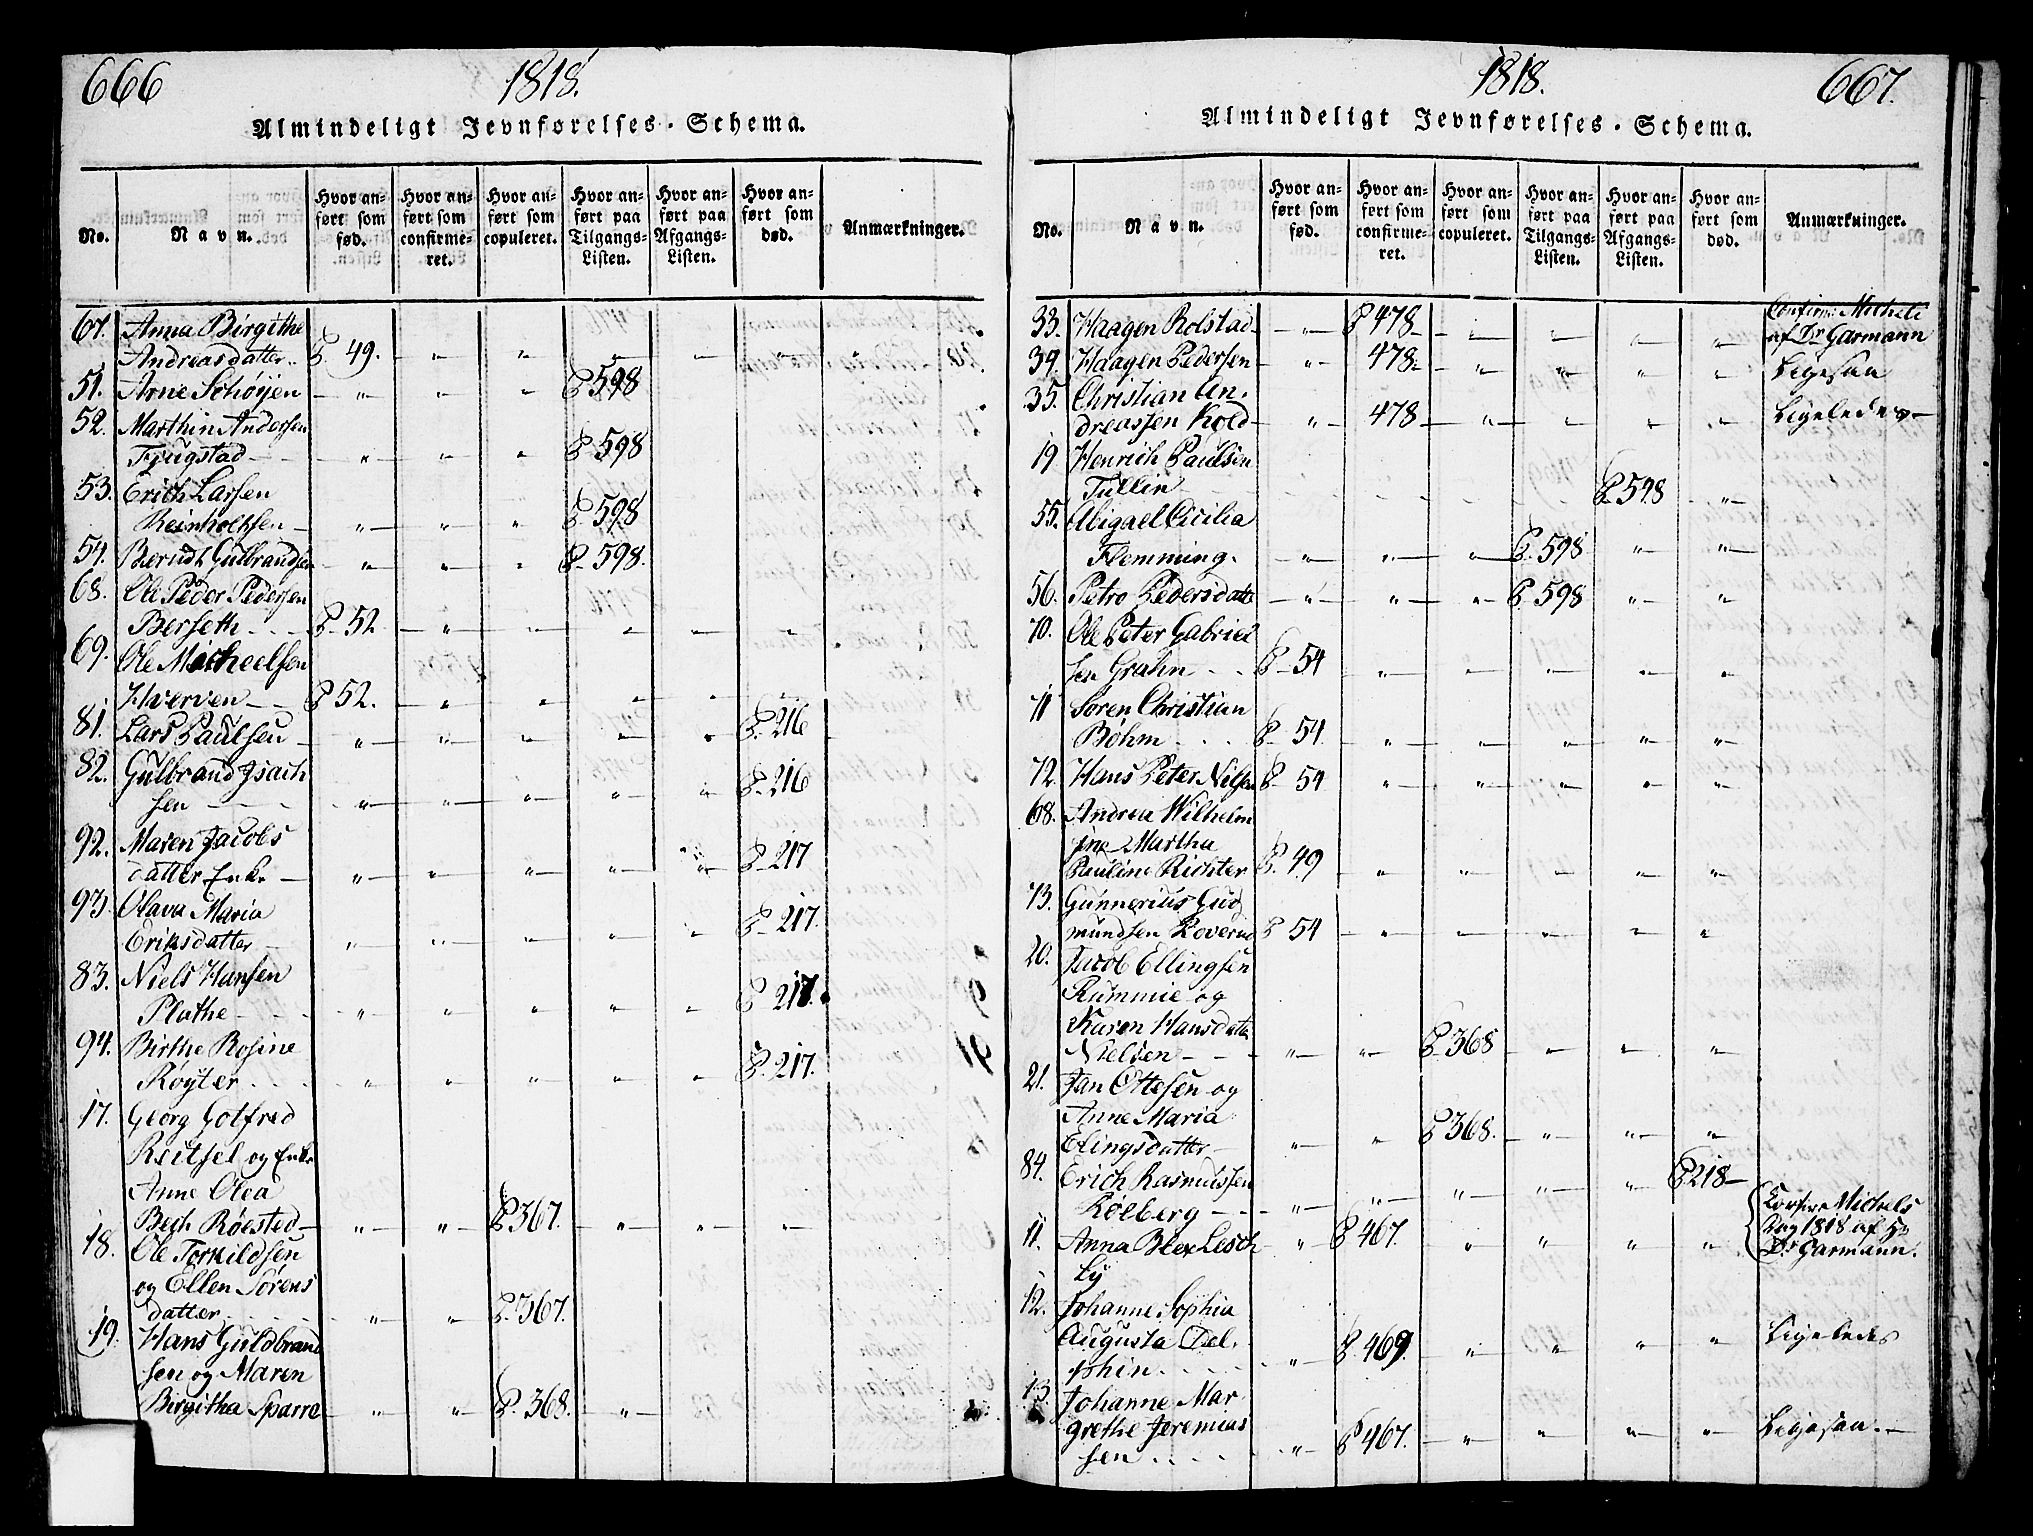 666
1818.
Almindeligt Jevnførelses-Schema.
No.
Navn.
Hvor anført som fød.
Hvor anført som confirmeret.
Hvor anført som copuleret.
Hvor anført paa Tilgangs-Listen.
Hvor anført paa Afgangs-Listen.
Hvor anført som død.
Anmærkninger.
67. Anna Birgithe
Andreasdatter.. P. 49. " " " " "
51. Arne Schøyen " " " P 598
52. Marthin Andersen
Tjugstad " " " P 598
53. Erich Larsen
Reinholtsen " " " P. 598
54. Berndt Gulbrandsen " " " P. 598.
68. Ole Peder Pedersen
Berseth P. 52 " " " " "
69. Ole Micheelsen
Hverven P 52. " " " " "
81. Lars Paulsen " " " " " P. 216
82. Gulbrand Isach
sen " " " " " P. 216
92. Maren Jacobs
datter Enke " " " " " P. 217
93. Olava Maria
Eriksdatter " " " " " P. 217.
83. Niels Hansen
Plathe " " " " " P 217.
94. Birthe Rosine
Røyter " " " " " P. 217.
17. Georg Gotfred
Reitsel og Enke
Anne Olea
Bech Røested " " P 367. " " "
18. Ole Torkildsen
og Ellen Sørens
datter " " P. 367.
19. Hans Guldbrand
sen og Maren
Birgitha Sparre " " P. 368. "
1818.
667.
Almindeligt Jevnførelses-Schema.
No.
Navn.
Hvor anført som fød.
Hvor anført som confirmeret.
Hvor anført som copuleret.
Hvor anført paa Tilgangs-Listen.
Hvor anført paa Afgangs-Listen.
Hvor anført som død.
Anmærkninger.
33. Haagen Rolstad " P 478 " " " " Confirm: Micheli
af Dr Garmann
34. Haagen Pedersen " 478 " " " " Ligesaa
35. Christian An-
dreassen Kold " 478 " " " " Ligeledes
19 Henrich Paulsen
Tullin P. 548 "
55. Abigael Cicilia
Flemming. " " " P. 598 " "
56. Petro Pedersdatte " " " P 598 " "
70. Ole Peter Gabriel
sen Grahn P. 54 " " " " "
71 Søren Christian
Bøhm P. 54. " " " " "
72. Hans Peter Nilsen P. 54 " " " " "
68. Andrea Wilhelm
ine Martha
Pauline Richter P. 49 " " " " "
73. Gunnerius Gud
mundsen Roverud P 54 " " " " "
20. Jacob Ellingsen
Rummie og
Karen Hansdatte
Nielsen " " P. 368 " " "
21. Jan Ottesen og
Anne Maria
Elingsdatter " " P 368. " " "
84. Erich Rasmussen
Rølberg " " " " " P 218
11. Anna Blex Lesch
ly " P 467. " " " " Confir: Michels
Dag 1818 af
Dr Garmann.
12. Johanne Sophia
Augusta Del-
phin " P. 469. " " " " Ligeledes
13. Johanne Mar
grethe Jeremias
sen " P 467. " " " " Ligesaa.